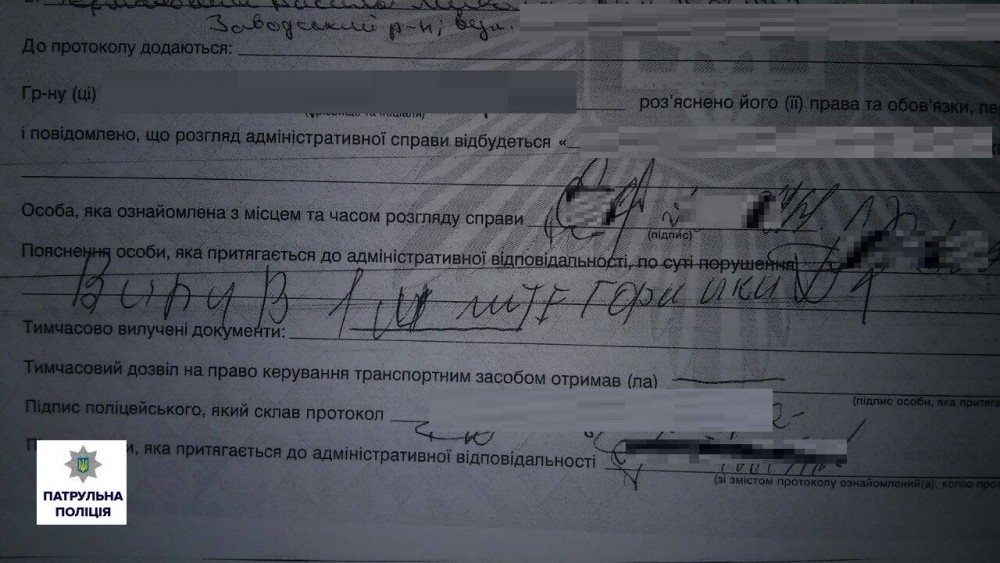 Заводський р-н, вул.
До протоколу додаються:
Гр-ну (ці) роз'яснено його (її) права та обов'язки, пе
(прізвище та ініціали)
і повідомлено, що розгляд адміністративної справи відбудеться «
Особа, яка ознайомлена з місцем та часом розгляду справи
(підпис)
Пояснення особи, яка притягається до адміністративної відповідальності, по суті порушення
Випив 1 літг горілки
Тимчасово вилучені документи:
Тимчасовий дозвіл на право керування транспортним засобом отримав (ла)
(підпис особи, яка притяга
Підпис поліцейського, який склав протокол
и, яка притягається до адміністративної відповідальності
(зі змістом протоколу ознайомлений(а), копію прот
ПАТРУЛЬНА
ПОЛІЦІЯ